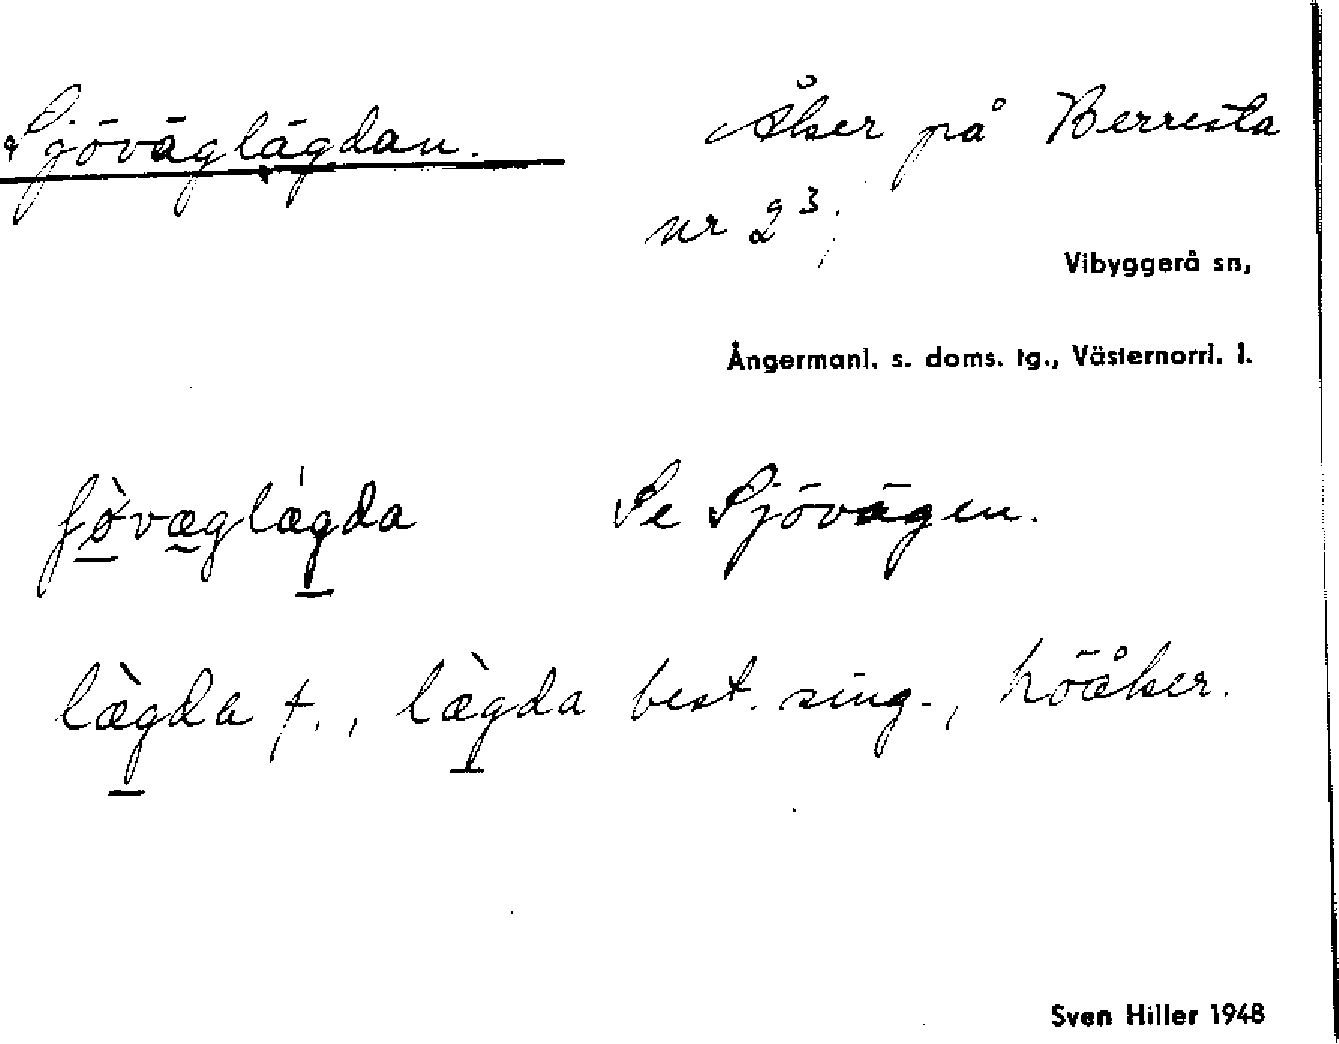 Sjöväglägdan. Åker på Berresta
nr 2³;
Vibyggerå sn,
Ångermanl. s. doms. tg., Västernorrl. l.
ʃø̀væglǽgda Se Sjövägen.
læ̀gda f., læ̀gda best. sing., höåker.
Sven Hiller 1948